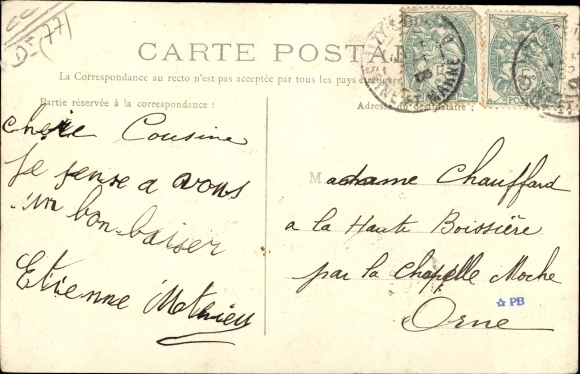 CC
Dt (77)
CARTE POSTALE
La Correspondance au recto n'est pas acceptée par tous les pays étrangers
Partie réservée à la correspondance :
Adresse du destinataire :
chère Cousine
je pense a vous
un bon baiser
Etienne Mathieu
Madame Chauffard
a la Haute Boissière
par la Chapelle Moche
Orne
☆ PB